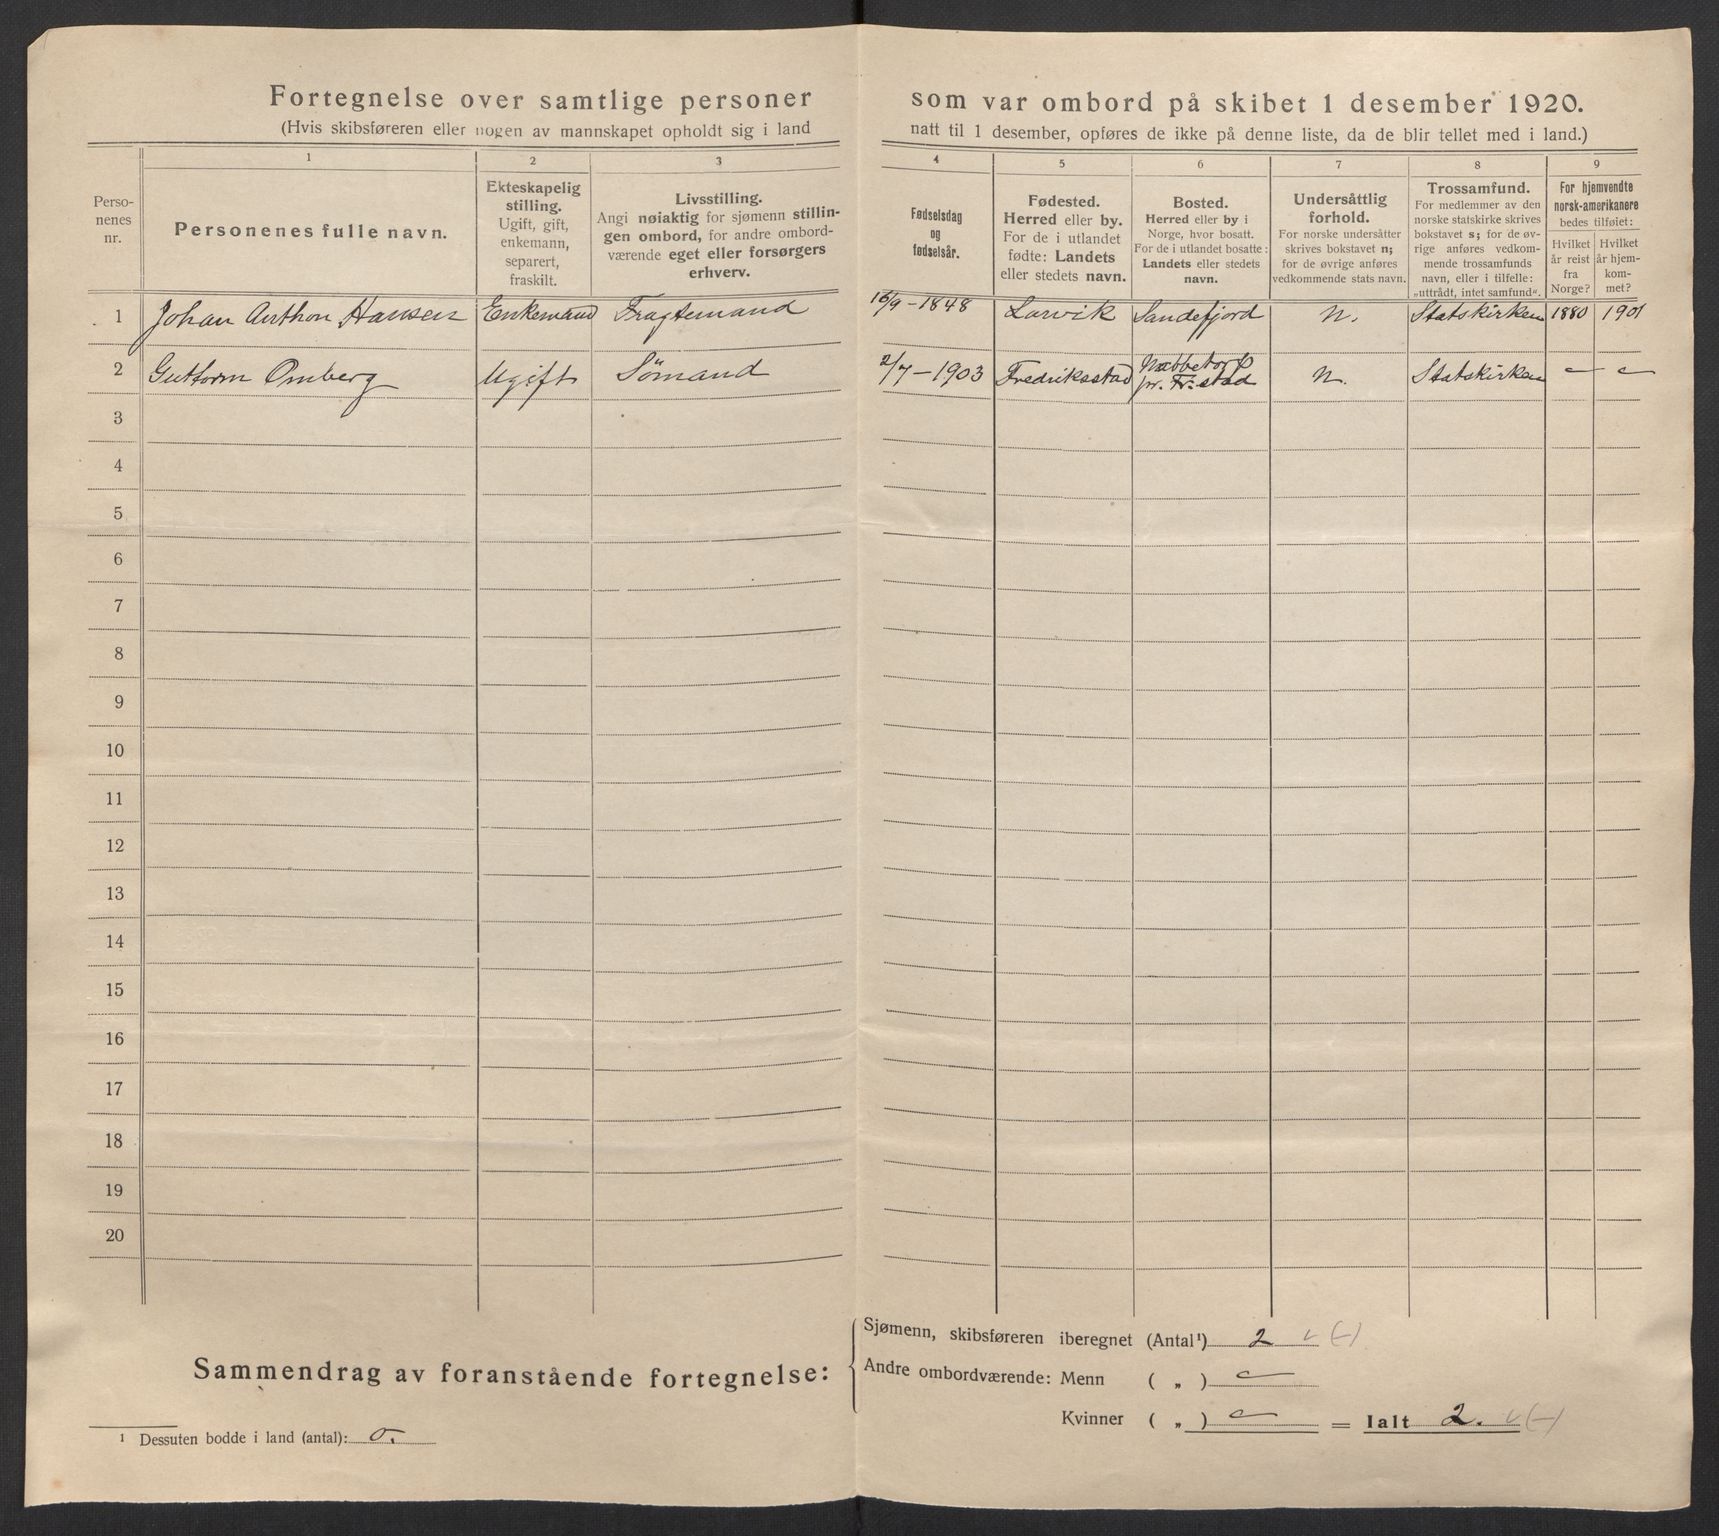 Fortegnelse over samtlige personer som var ombord på skibet 1 desember 1920.
(Hvis skibsføreren eller nogen av mannskapet opholdt sig i land natt til 1 desember, opføres de ikke på denne liste, da de blir tellet med i land.)
Perso-
nenes
nr.
1
Personenes fulle navn.
2
Ekteskapelig
stilling.
Ugift, gift,
enkemann,
separert,
fraskilt.
3
Livsstilling.
Angi nøiaktig for sjømenn stillin-
gen ombord, for andre ombord-
værende eget eller forsørgers
erhverv.
4
Fødselsdag
og
fødselsår.
5
Fødested.
Herred eller by.
For de i utlandet
fødte: Landets
eller stedets navn.
6
Bosted.
Herred eller by i
Norge, hvor bosatt.
For de i utlandet bosatte:
Landets eller stedets
navn.
7
Undersåttlig
forhold.
For norske undersåtter
skrives bokstavet n;
for de øvrige anføres
vedkommende stats navn.
8
Trossamfund.
For medlemmer av den
norske statskirke skrives
bokstavet s; for de øv-
rige anføres vedkom-
mende trossamfunds
navn, eller i tilfelle:
„uttrådt, intet samfund“.
9
For hjemvendte
norsk-amerikanere
bedes tilføiet:
Hvilket
år reist
fra
Norge?
Hvilket
år hjem-
kom-
met?
1 Johan Anthon Hansen Enkemand Fragtemand 16/9-1848 Larvik Sandefjord N. Statskirken 1880 1901
2 Guttorm Omberg Ugift Sømand 2/7-1903 Fredriksstad Nabbetorp
pr. Fr:stad N. Statskirken - -
3
4
5
6
7
8
9
10
11
12
13
14
15
16
17
18
19
20
Sammendrag av foranstående fortegnelse:
Sjømenn, skibsføreren iberegnet (Antal¹) 2 v (-)
Andre ombordværende: Menn ( „ ) -
Kvinner ( „ ) - = Ialt 2. v (-)
¹ Dessuten bodde i land (antal): 0.